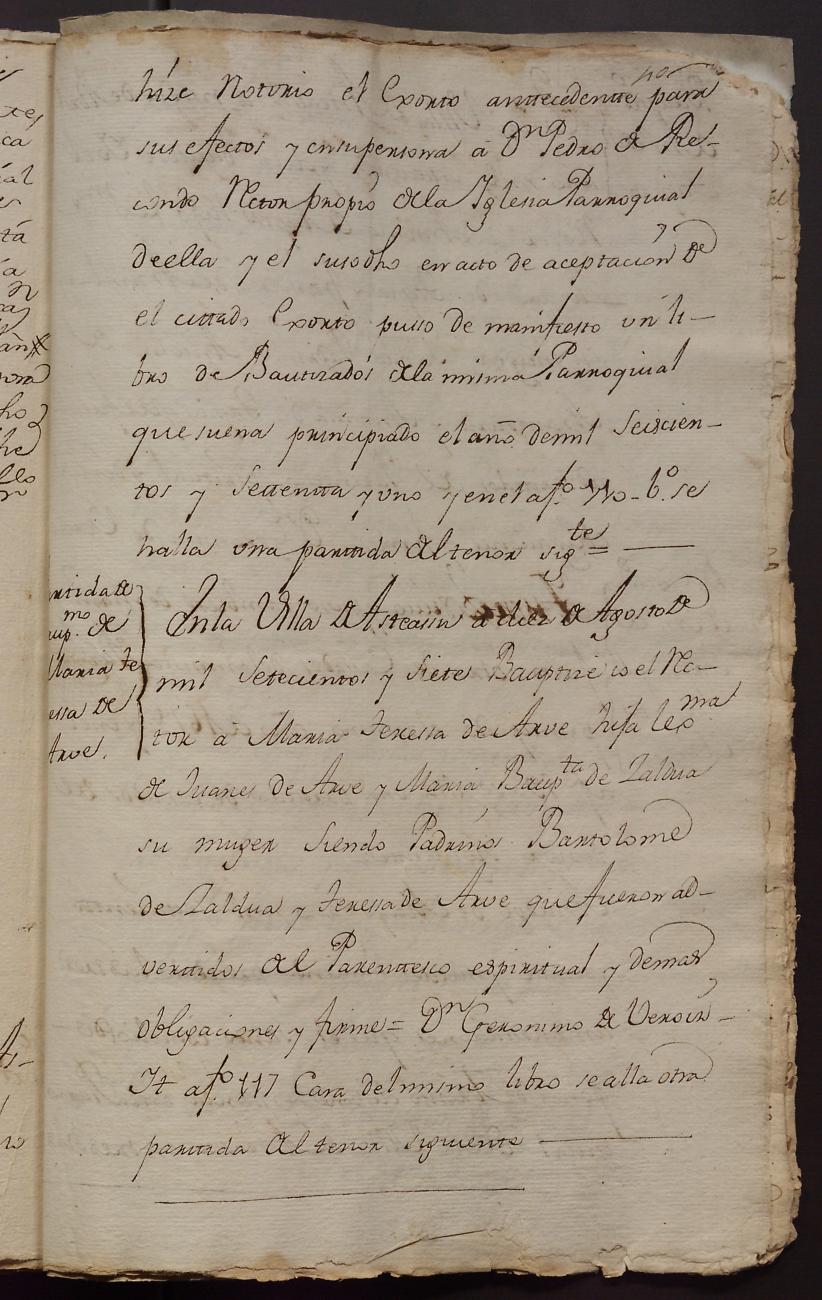 hize Notorio el Exorto anttecedentte para
sus efectos y en supersona â Dn. Pedro de Re-
condo Rector propio de la Iglesia Parroquial
de ella y el susodho en acto de aceptacion de
el cittado Exorto puso de manifiesto un li-
bro de Bautizados de la misma Parroquial
que suena principiado el año de mil Seiscien-
tos y Settentta y uno y en el afo. 110 bo. se
halla una parttida del tenor sigte =
Partida de
Baupmo. de
Maria Te
ressa de
Arve.
En la Villa de Asteassu a diez de Agosto de
mil Setecientos y Siete Bauptize io el Rec-
tor â Maria Teressa de Arve hija lexma
de Juanes de Arve y Maria Baupta de Zaldua
su muger siendo Padrinos Bartolome
de Zaldua y Teressa de Arve que fueron ad-
verttidos del Parenttesco espiritual y demas
obligaciones y firme = Dn Geronimo de Veroiz -
It afo. 117 Cara del mismo libro se alla otra
parttida del tenor siguiente